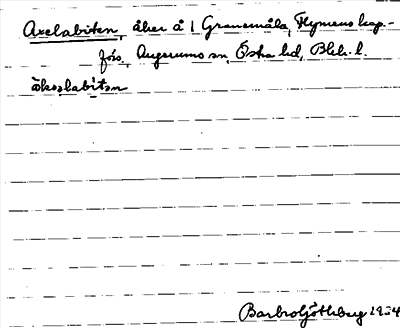 Axelabiten, åker å 1 Granemåla, Flymens kap.-
förs, Augerums sn, Östra hd, Blek. l.
åkselabitən
Barbro Götlberg 1934